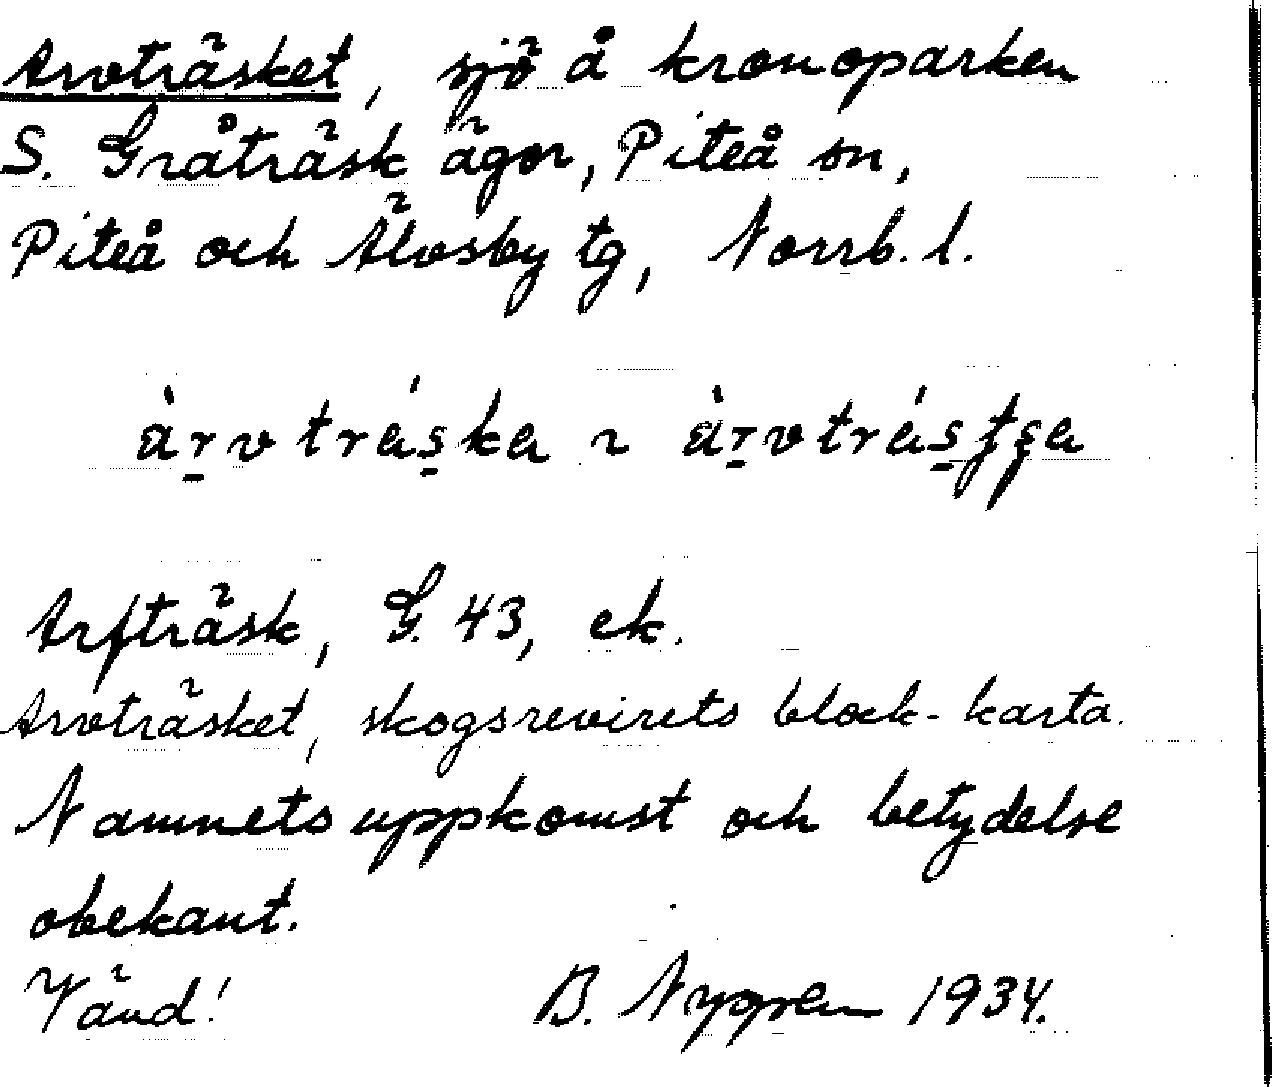 Arvoträsket, sjö å kronoparken
S. Gråträsk ägor, Piteå sn,
Piteå och Älvsby tg, Norrb. l.
àr̠vtrás̠ka ~ àr̠vtrás̠tșa
Arfträsk, G. 43, ek.
Arvträsket, skogsrevirets block-karta.
Namnets uppkomst och betydelse
obekant.
Vänd! B. Nygren 1934.